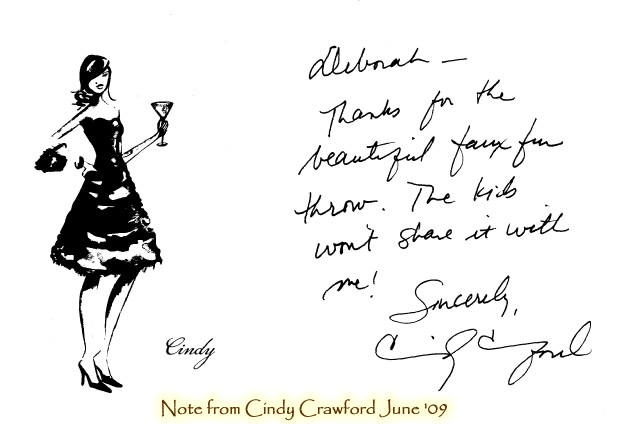 Deborah —
Thanks for the
beautiful faux fur
throw. The kids
won't share it with
me!
Sincerely,
Cindy Crawford
Cindy
Note from Cindy Crawford June '09